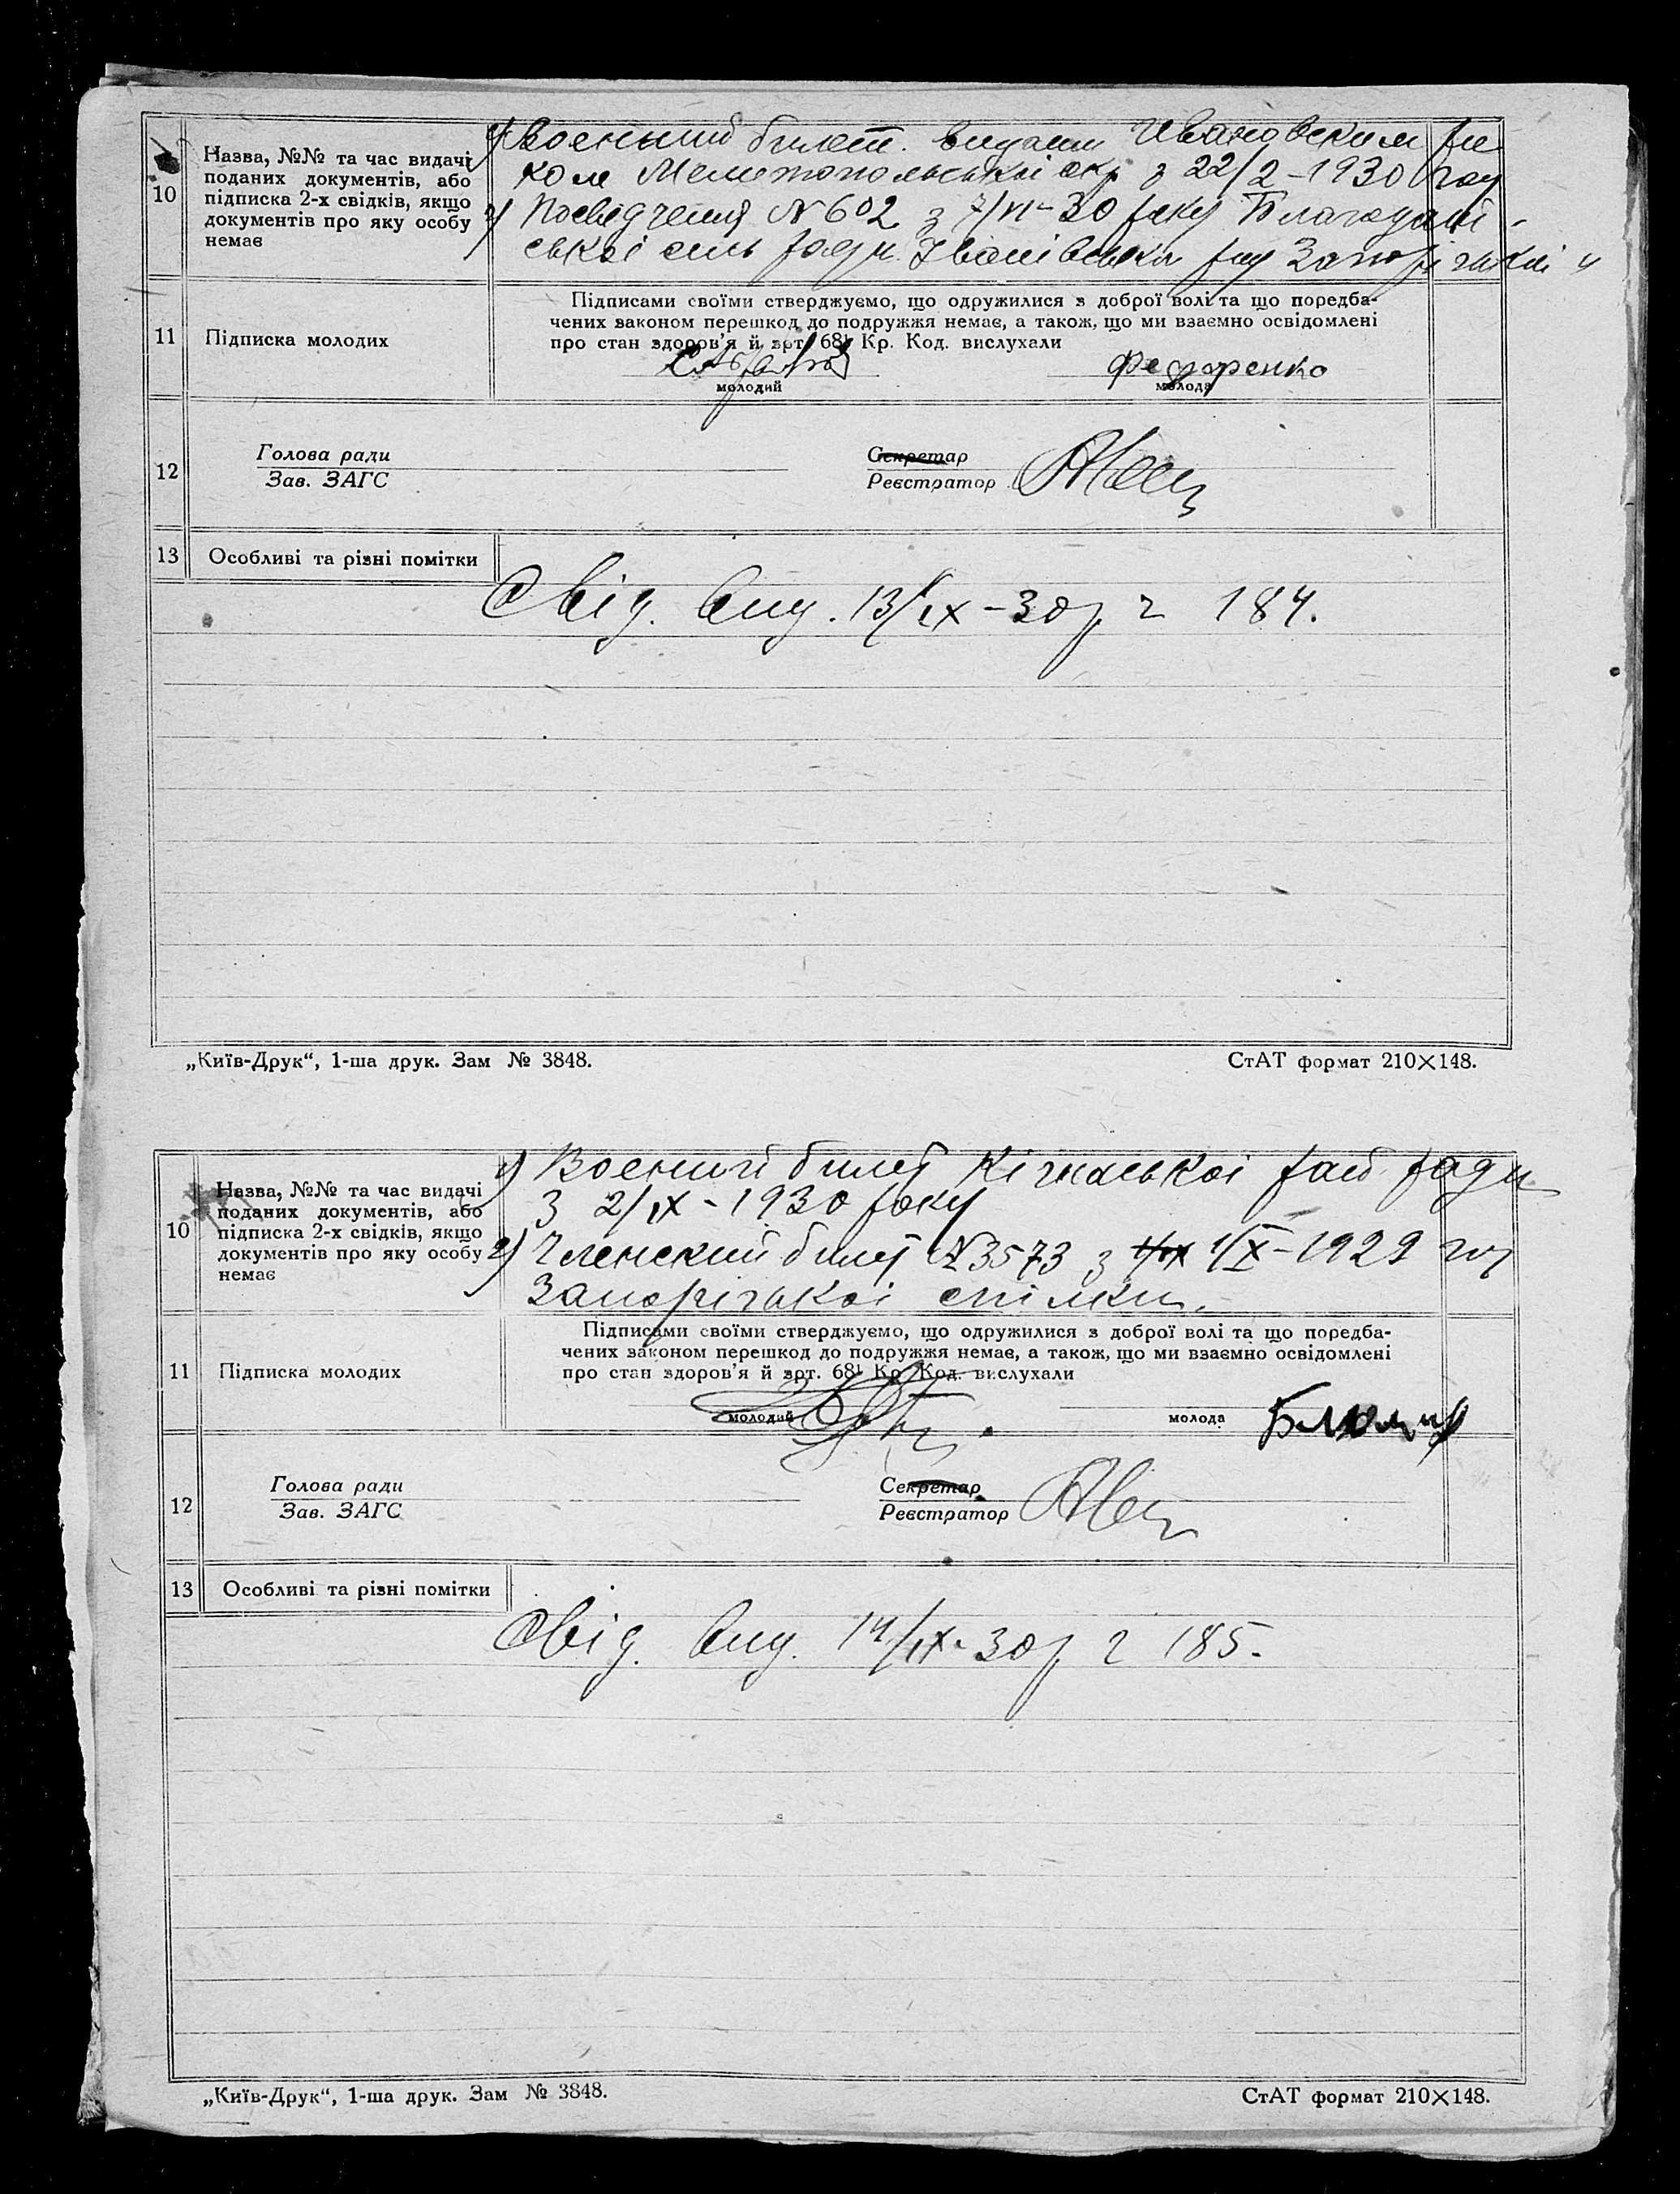 10
Назва, №№ та час видачі
поданих документів, або
підписка 2-х свідків, якщо
документів про яку особу
немає
1) Военный билет. видан Ивановским ри
ком Мелитопольської окр з 22/2-1930 году
2) Посвідчення N 602 з 7/VI-30 року Благодат
ської сель ради Іванівськ
11
Підписка молодих
Підписами своїми стверджуємо, що одружилися з доброї волі та що передба-
чених законом перешкод до подружжя немає, а також, що ми взаємно освідомлені
про стан здоров'я й арт. 68¹ Кр. Код. вислухали
молодий
Федоренко
молода
12
Голова ради
Зав. ЗАГС
Секретар
Реєстратор
13
Особливі та різні помітки
Свід. вид. 13/IX-30 р 184.
„Київ-Друк“, 1-ша друк. Зам № 3848.
СтАТ формат 210×148.
10
Назва, №№ та час видачі
поданих документів, або
підписка 2-х свідків, якщо
документів про яку особу
немає
1) Воений билет Кічкаської рай ради
з 2/IX-1930 року
2) Членский билет №3573 з 1/X-1929
Запорізької спілки.
11
Підписка молодих
Підписами своїми стверджуємо, що одружилися з доброї волі та що передба-
чених законом перешкод до подружжя немає, а також, що ми взаємно освідомлені
про стан здоров'я й арт. 68¹ Кр. Код. вислухали
молодий
молода
12
Голова ради
Зав. ЗАГС
Секретар
Реєстратор
13
Особливі та різні помітки
Свід. вид. 14/IX-30 р 185.
„Київ-Друк“, 1-ша друк. Зам № 3848.
СтАТ формат 210×148.